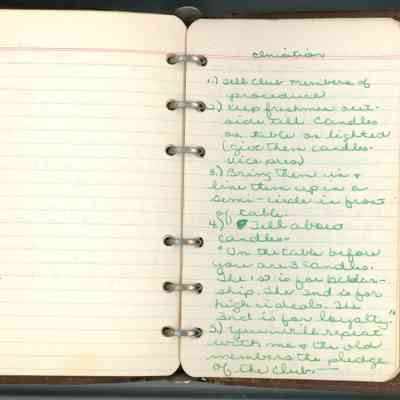 Initiation
1.) Tell Club members of
procedure
2.) Keep freshmen out-
side till candles
on table are lighted
(give them candles-
vice pres)
3.) Bring them in &
line them up in a
semi-circle in front
of table.
4.) Tell about
candles-
"On the table before
you are 3 candles.
The 1st is for leader-
ship. The 2nd is for
high ideals. The
3rd is for loyalty."
5.) You will repeat
with me & the old
members the pledge
of the Club.-